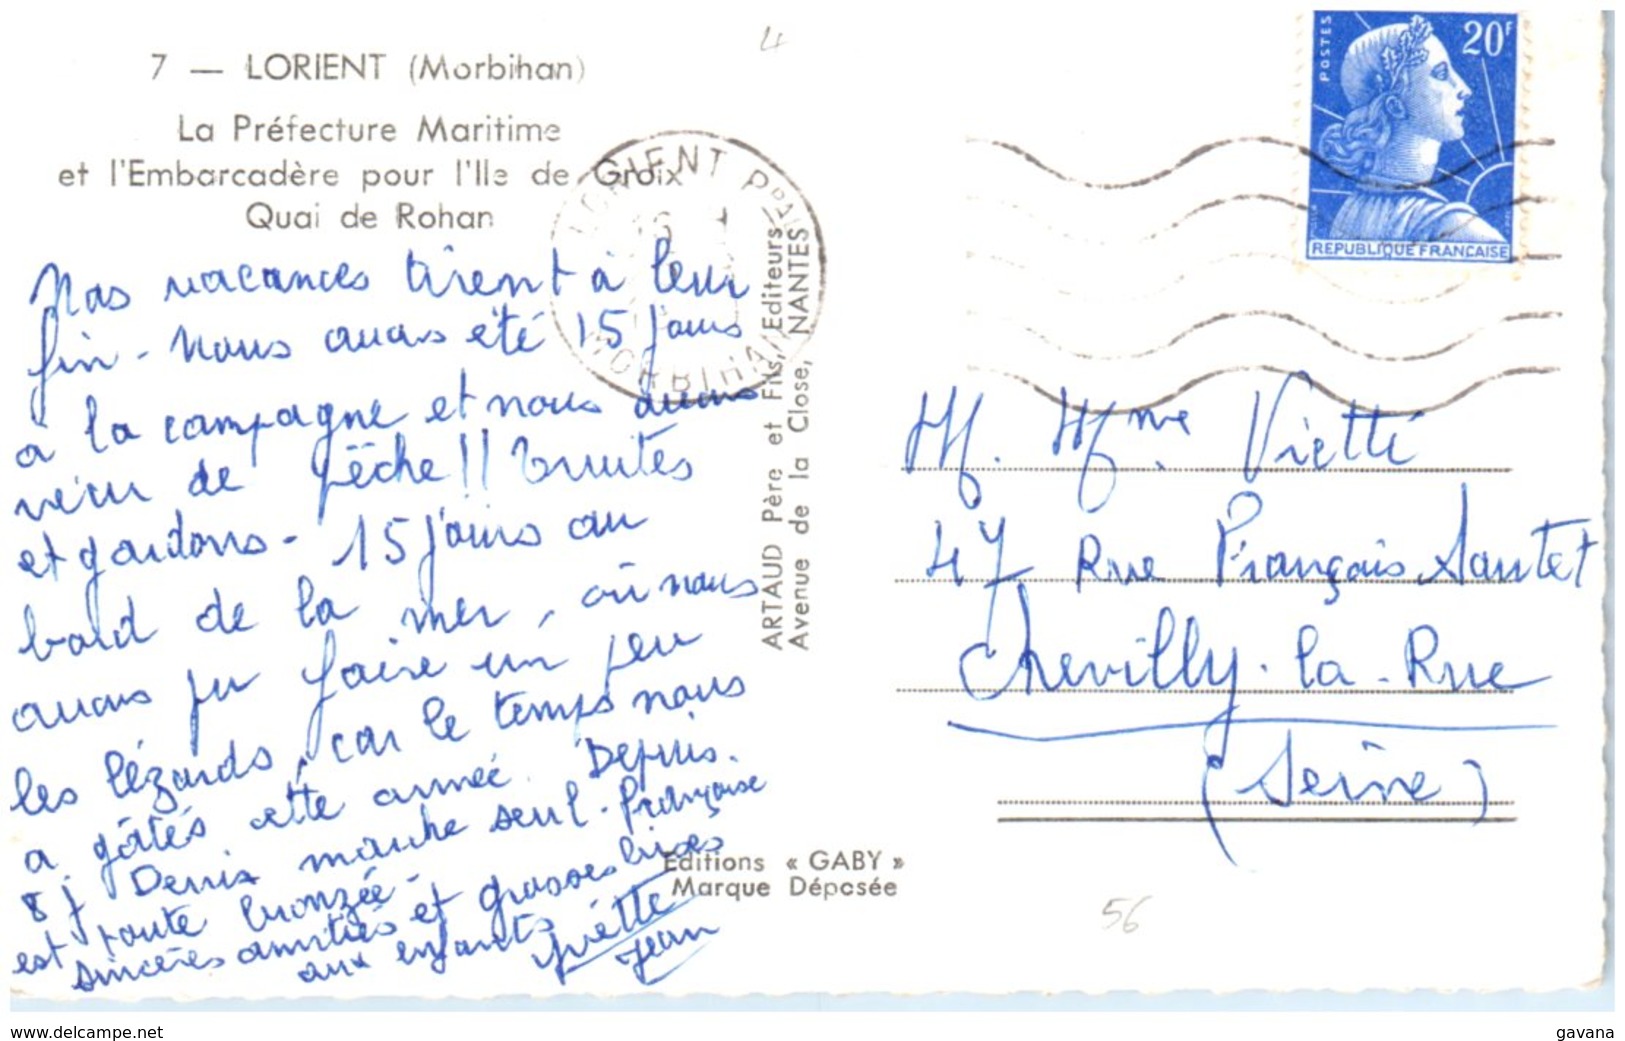 7 — LORIENT (Morbihan)
La Préfecture Maritime
et l'Embarcadère pour l'Ile de Groix
Quai de Rohan
4
POSTES
20F
REPUBLIQUE FRANÇAISE
LORIENT Ppal
16
MORBIHAN
Nos vacances tirent à leur
fin - Nous avons été 15 jours
à la campagne et nous avons
vécu de pêche !! Truites
et gardons - 15 jours au
bord de la mer, où nous
avons pu faire un peu
les lézards, car le temps nous
a gâtés cette année. Depuis
8 j Denis marche seul - Françoise
est toute bronzée -
sincères amitiés et grosses bises
aux enfants
Yvette
Jean
ARTAUD Père et Fils, Editeurs
Avenue de la Close, NANTES
M. Mme Vietti
47 Rue François Sautet
Chevilly-la-Rue
(Seine)
Editions « GABY »
Marque Déposée
56
www.delcampe.net
gavana